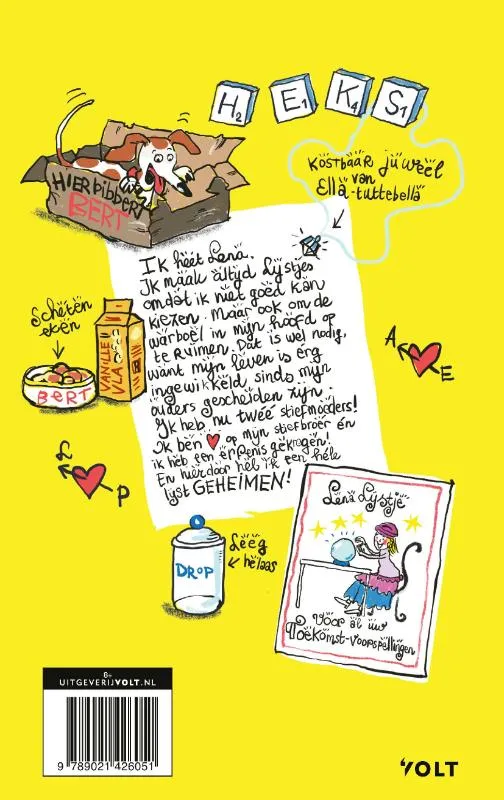 H2 E1 K4 S1
Kostbaar juweel
van
Ella-tuttebella
HIER BIBBERT
BERT
Ik heet Lena.
Ik maak altijd lijstjes
omdat ik niet goed kan
kiezen. Maar ook om de
warboel in mijn hoofd op
te ruimen. Dat is wel nodig,
want mijn leven is erg
ingewikkeld sinds mijn
ouders gescheiden zijn.
Ik heb nu twee stiefmoeders!
Ik ben ♥ op mijn stiefbroer én
ik heb een erfenis gekregen!
En hierdoor heb ik een hele
lijst GEHEIMEN!
Scheten
eten
VANILLE
VLA
BERT
A
E
L
P
DROP
Leeg
helaas
Lena Lijstje
Voor al uw
Toekomst-voorspellingen
8+
UITGEVERIJVOLT.NL
9 789021 426051
VOLT